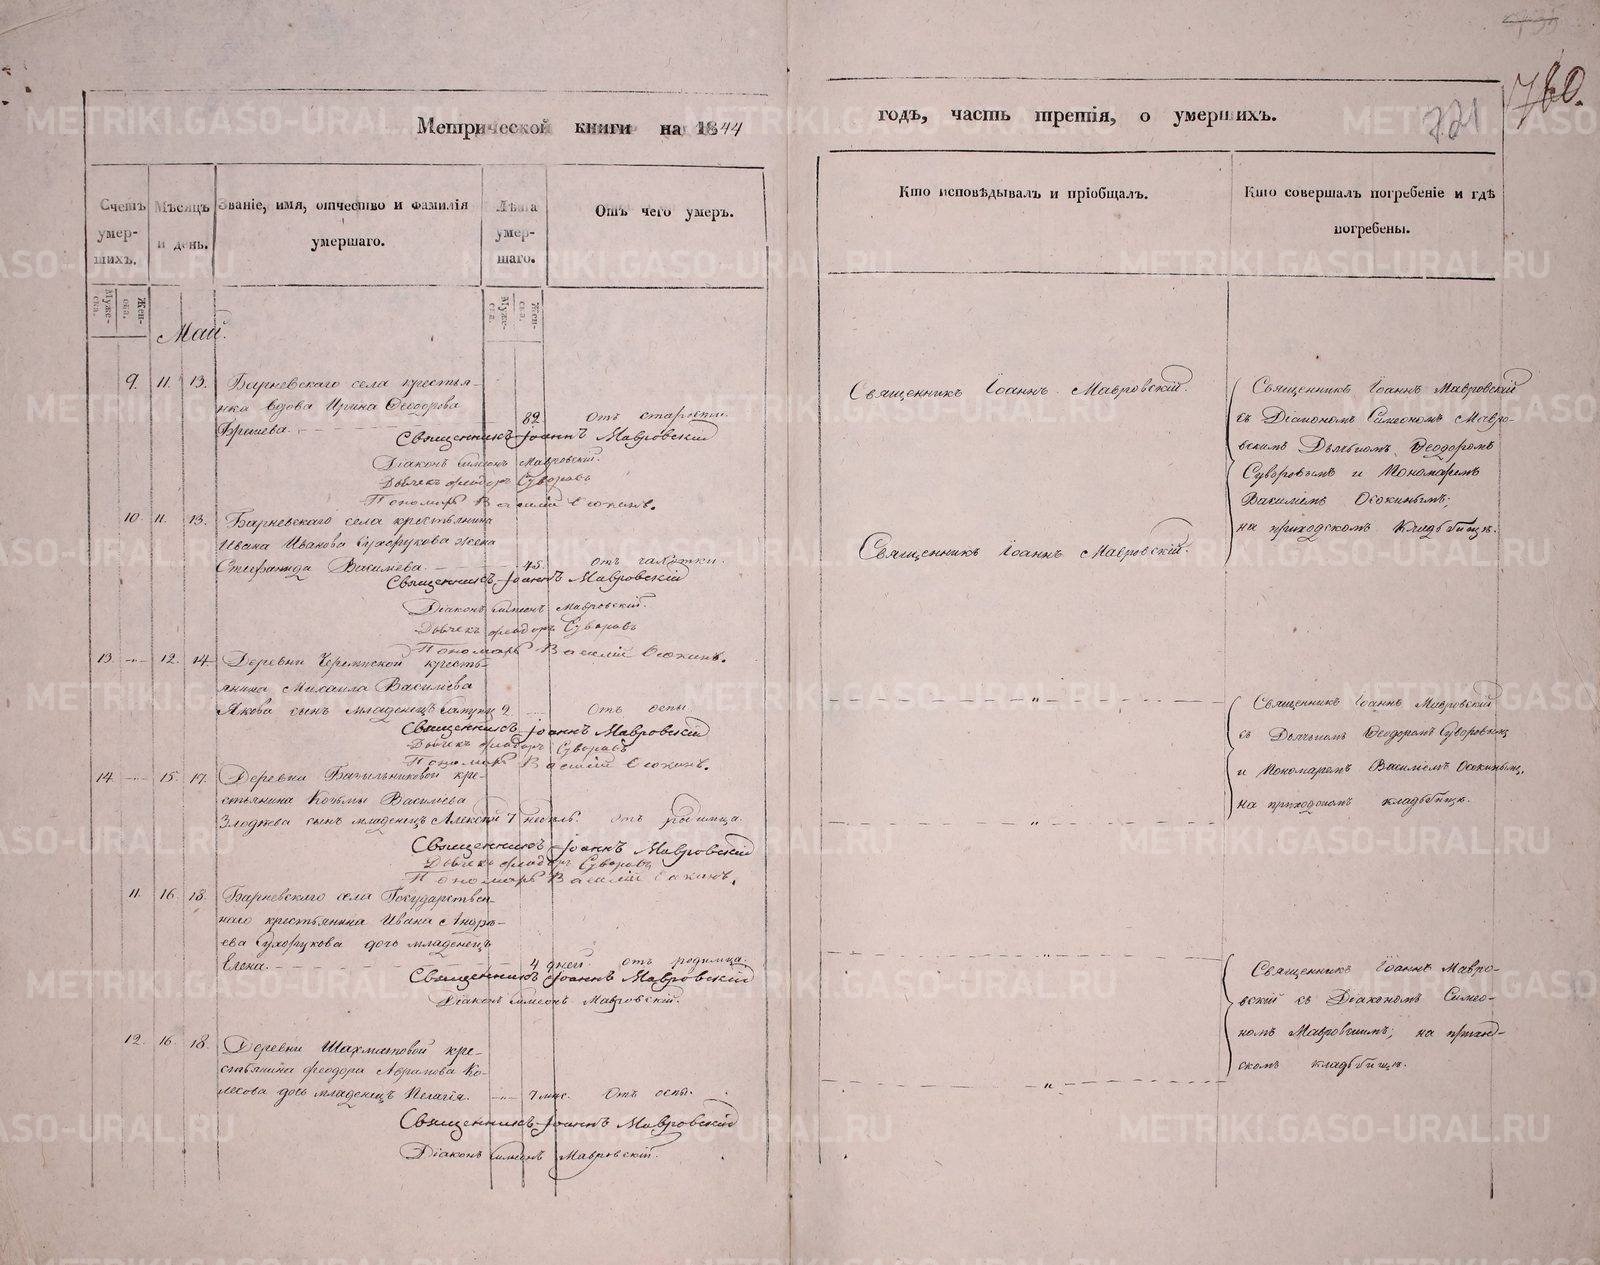 Метрической книги на 1844
годъ, часть третія, о умершихъ.
721
780.
Счетъ умер-шихъ.
Мѣсяцъ и день.
Званіе, имя, отчество и фамилія умершаго.
Лѣта умер-шаго.
Отъ чего умеръ.
Кто исповѣдывалъ и пріобщалъ.
Кто совершалъ погребеніе и гдѣ погребены.
Муже-ска.
Жен-ска.
Муже-ска.
Жен-ска.
Май.
9. 11. 13. Барневскаго села крестья-
нка вдова Ирина Ѳеодорова
82 Отъ старости.
Священникъ Іоаннъ Мавровскій
Діаконъ Симеонъ Мавровскій.
Дьячекъ Феодоръ Суворовъ
Пономарь Василій Осокинъ.
Священникъ Іоаннъ Мавровскій.
Священникъ Іоаннъ Мавровскій
съ Діакономъ Симеономъ Мавро-
вскимъ Дьячкомъ Ѳеодоромъ
Суворовымъ и Пономаремъ
Василіемъ Осокинымъ;
на приходскомъ кладбищѣ.
10. 11. 13. Барневскаго села крестьянина
Ивана Иванова Сухорукова жена
Стефанида Васильева. 45. отъ чахотки.
Священникъ Іоаннъ Мавровскій
Діаконъ Симеонъ Мавровскій.
Дьячекъ Феодоръ Суворовъ
Пономарь Василій Осокинъ.
Священникъ Іоаннъ Мавровскій.
13. 12. 14. Деревни крестья-
янина Михаила Васильева
Якова сынъ младенецъ 2 Отъ оспы.
Священникъ Іоаннъ Мавровскій
Дьячекъ Феодоръ Суворовъ
Пономарь Василій Осокинъ.
"
Священникъ Іоаннъ Мавровскій
съ Дьячкомъ Ѳеодоромъ Суворовымъ
и Пономаремъ Василіемъ Осокинымъ,
на приходскомъ кладбищѣ.
14. 15. 17. Деревни кре-
стьянина Козьмы Васильева
сынъ младенецъ Алексѣй 7 недѣль. отъ родимца.
Священникъ Іоаннъ Мавровскій
Дьячекъ Феодоръ Суворовъ
Пономарь Василій Осокинъ.
"
11. 16. 18. Барневскаго села Государствен-
наго крестьянина Ивана Андрѣ-
ева Сухорукова дочь младенецъ
Елена. 4 дней отъ родимца.
Священникъ Іоаннъ Мавровскій
Діаконъ Симеонъ Мавровскій.
"
Священникъ Іоаннъ Мавро-
вскій съ Діакономъ Симео-
номъ Мавровскимъ; на приход-
скомъ кладбищѣ.
12. 16. 18. Деревни Шахматовой кре-
стьянина Феодора Аврамова Ко-
лесова дочь младенецъ Пелагія. 7 мѣс. Отъ оспы.
Священникъ Іоаннъ Мавровскій
Діаконъ Симеонъ Мавровскій.
"
METRIKI.GASO-URAL.RU